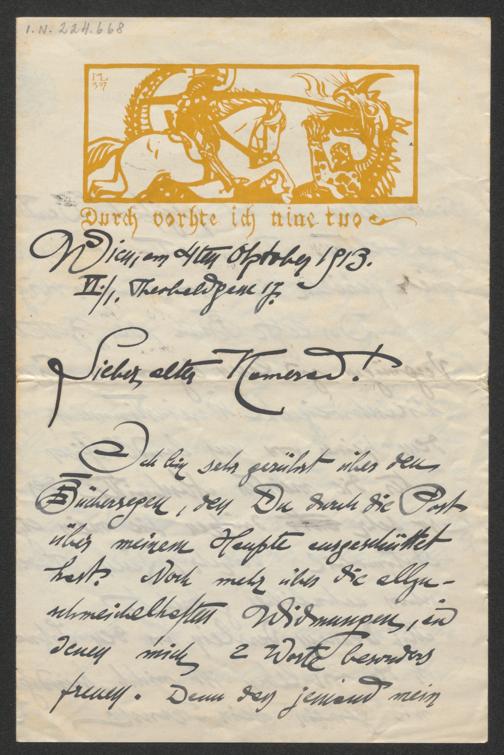 I.N. 224.668
ML
97
Durch vorhte ich nine tuo
Wien, am 4ten Oktober 1913.
VI./1, Theobaldgasse 17.
Lieber, alter Kamerad!
Ich bin sehr gerührt über den
Büchersegen, den Du durch die Post
über meinem Haupte ausgeschüttet
hast. Noch mehr über die allzu-
schmeichelhaften Widmungen, in
denen mich 2 Worte besonders
freuen. Denn daß jemand mein